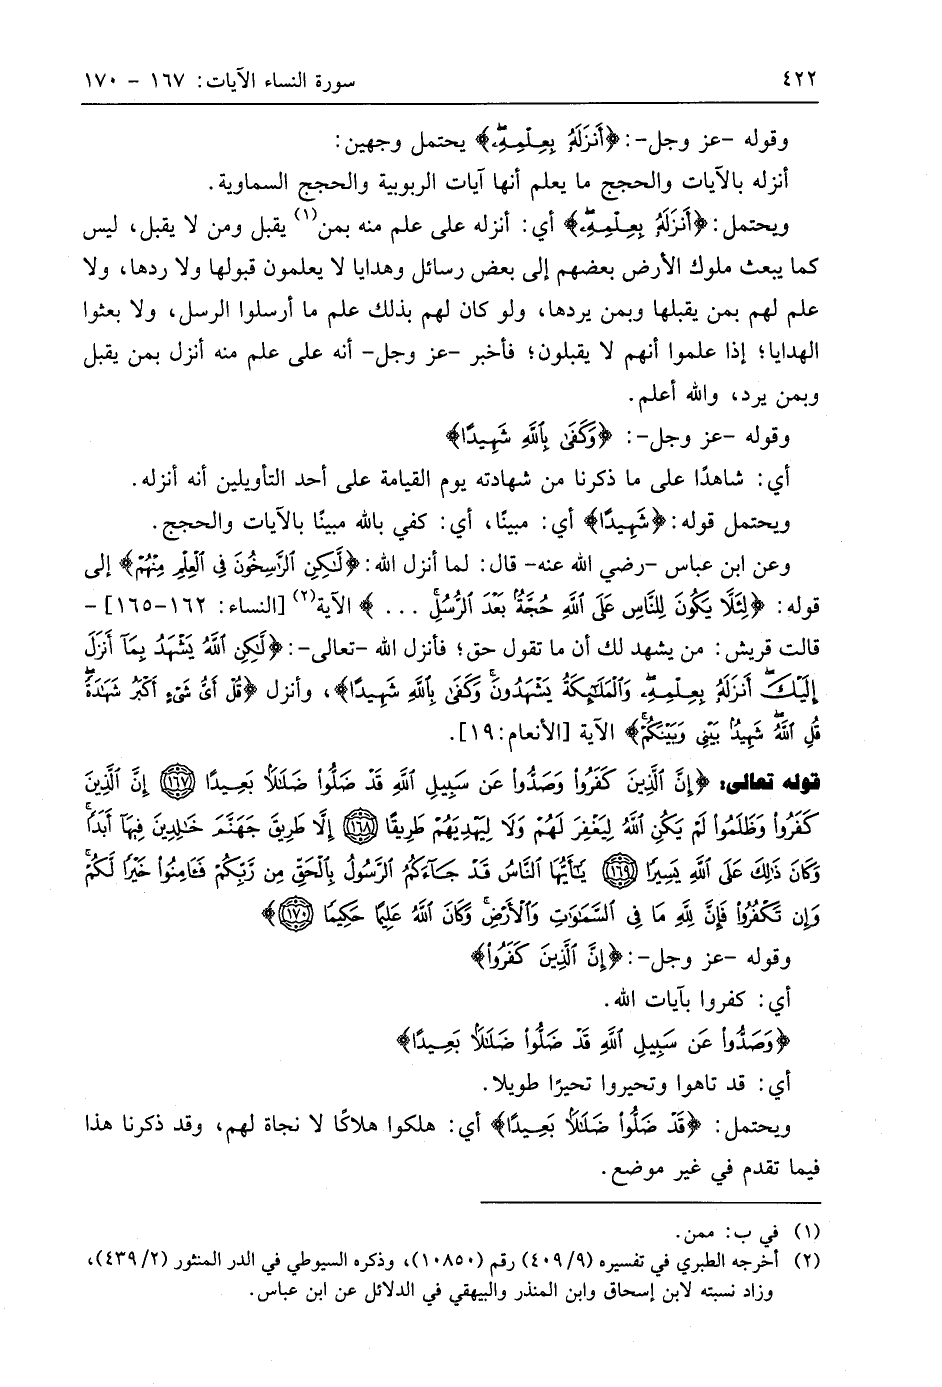 ٤٢٢ سورة النساء الآيات: ١٦٧ - ١٧٠
وقوله -عز وجل-: ﴿أَنزَلَهُۥ بِعِلْمِهِۦۖ﴾ يحتمل وجهين:
أنزله بالآيات والحجج ما يعلم أنها آيات الربوبية والحجج السماوية.
ويحتمل: ﴿أَنزَلَهُۥ بِعِلْمِهِۦۖ﴾ أي: أنزله على علم منه بمن(١) يقبل ومن لا يقبل، ليس
كما يبعث ملوك الأرض بعضهم إلى بعض رسائل وهدايا لا يعلمون قبولها ولا ردها، ولا
علم لهم بمن يقبلها وبمن يردها، ولو كان لهم بذلك علم ما أرسلوا الرسل، ولا بعثوا
الهدايا؛ إذا علموا أنهم لا يقبلون؛ فأخبر -عز وجل- أنه على علم منه أنزل بمن يقبل
وبمن يرد، والله أعلم.
وقوله -عز وجل-: ﴿وَكَفَىٰ بِٱللَّهِ شَهِيدًا﴾
أي: شاهدًا على ما ذكرنا من شهادته يوم القيامة على أحد التأويلين أنه أنزله.
ويحتمل قوله: ﴿شَهِيدًا﴾ أي: مبينًا، أي: كفي بالله مبينًا بالآيات والحجج.
وعن ابن عباس -رضي الله عنه- قال: لما أنزل الله: ﴿لَّٰكِنِ ٱلرَّٰسِخُونَ فِى ٱلْعِلْمِ مِنْهُمْ﴾ إلى
قوله: ﴿لِئَلَّا يَكُونَ لِلنَّاسِ عَلَى ٱللَّهِ حُجَّةٌۢ بَعْدَ ٱلرُّسُلِۚ ...﴾ الآية(٢) [النساء: ١٦٢-١٦٥] -
قالت قريش: من يشهد لك أن ما تقول حق؛ فأنزل الله -تعالى-: ﴿لَّٰكِنِ ٱللَّهُ يَشْهَدُ بِمَآ أَنزَلَ
إِلَيْكَۖ أَنزَلَهُۥ بِعِلْمِهِۦۖ وَٱلْمَلَٰٓئِكَةُ يَشْهَدُونَۚ وَكَفَىٰ بِٱللَّهِ شَهِيدًا﴾، وأنزل ﴿قُلْ أَىُّ شَىْءٍ أَكْبَرُ شَهَٰدَةًۖ
قُلِ ٱللَّهُۖ شَهِيدٌۢ بَيْنِى وَبَيْنَكُمْۚ﴾ الآية [الأنعام: ١٩].
قوله تعالى: ﴿إِنَّ ٱلَّذِينَ كَفَرُوا۟ وَصَدُّوا۟ عَن سَبِيلِ ٱللَّهِ قَدْ ضَلُّوا۟ ضَلَٰلًۢا بَعِيدًا ١٦٧ إِنَّ ٱلَّذِينَ
كَفَرُوا۟ وَظَلَمُوا۟ لَمْ يَكُنِ ٱللَّهُ لِيَغْفِرَ لَهُمْ وَلَا لِيَهْدِيَهُمْ طَرِيقًا ١٦٨ إِلَّا طَرِيقَ جَهَنَّمَ خَٰلِدِينَ فِيهَآ أَبَدًاۚ
وَكَانَ ذَٰلِكَ عَلَى ٱللَّهِ يَسِيرًا ١٦٩ يَٰٓأَيُّهَا ٱلنَّاسُ قَدْ جَآءَكُمُ ٱلرَّسُولُ بِٱلْحَقِّ مِن رَّبِّكُمْ فَـَٔامِنُوا۟ خَيْرًا لَّكُمْۚ
وَإِن تَكْفُرُوا۟ فَإِنَّ لِلَّهِ مَا فِى ٱلسَّمَٰوَٰتِ وَٱلْأَرْضِۚ وَكَانَ ٱللَّهُ عَلِيمًا حَكِيمًا ١٧٠﴾
وقوله -عز وجل-: ﴿إِنَّ ٱلَّذِينَ كَفَرُوا۟﴾
أي: كفروا بآيات الله.
﴿وَصَدُّوا۟ عَن سَبِيلِ ٱللَّهِ قَدْ ضَلُّوا۟ ضَلَٰلًۢا بَعِيدًا﴾
أي: قد تاهوا وتحيروا تحيرًا طويلا.
ويحتمل: ﴿قَدْ ضَلُّوا۟ ضَلَٰلًۢا بَعِيدًا﴾ أي: هلكوا هلاكًا لا نجاة لهم، وقد ذكرنا هذا
فيما تقدم في غير موضع.
(١) في ب: ممن.
(٢) أخرجه الطبري في تفسيره (٤٠٩/٩) رقم (١٠٨٥٠)، وذكره السيوطي في الدر المنثور (٤٣٩/٢)،
وزاد نسبته لابن إسحاق وابن المنذر والبيهقي في الدلائل عن ابن عباس.